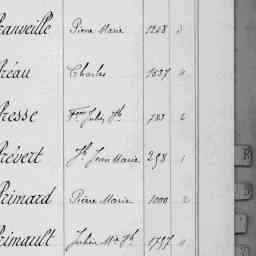 ranveille Pierre Marie 1248 3
réau Charles 1637 11
resse Fçois Jules Jh 783 6
révert Jh Jean Marie 298 1
rimard Pierre Marie 1000 2
rimault Julien Mie Jh 1797 11